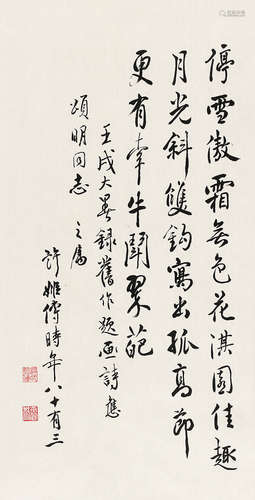 停雪傲霜無色花淇園佳趣
月光斜雙鈎寫出孤高節
更有牽牛鬪翠葩
壬戌大暑録舊作題畫詩應
頌明同志之屬
許姬傳時年八十有三